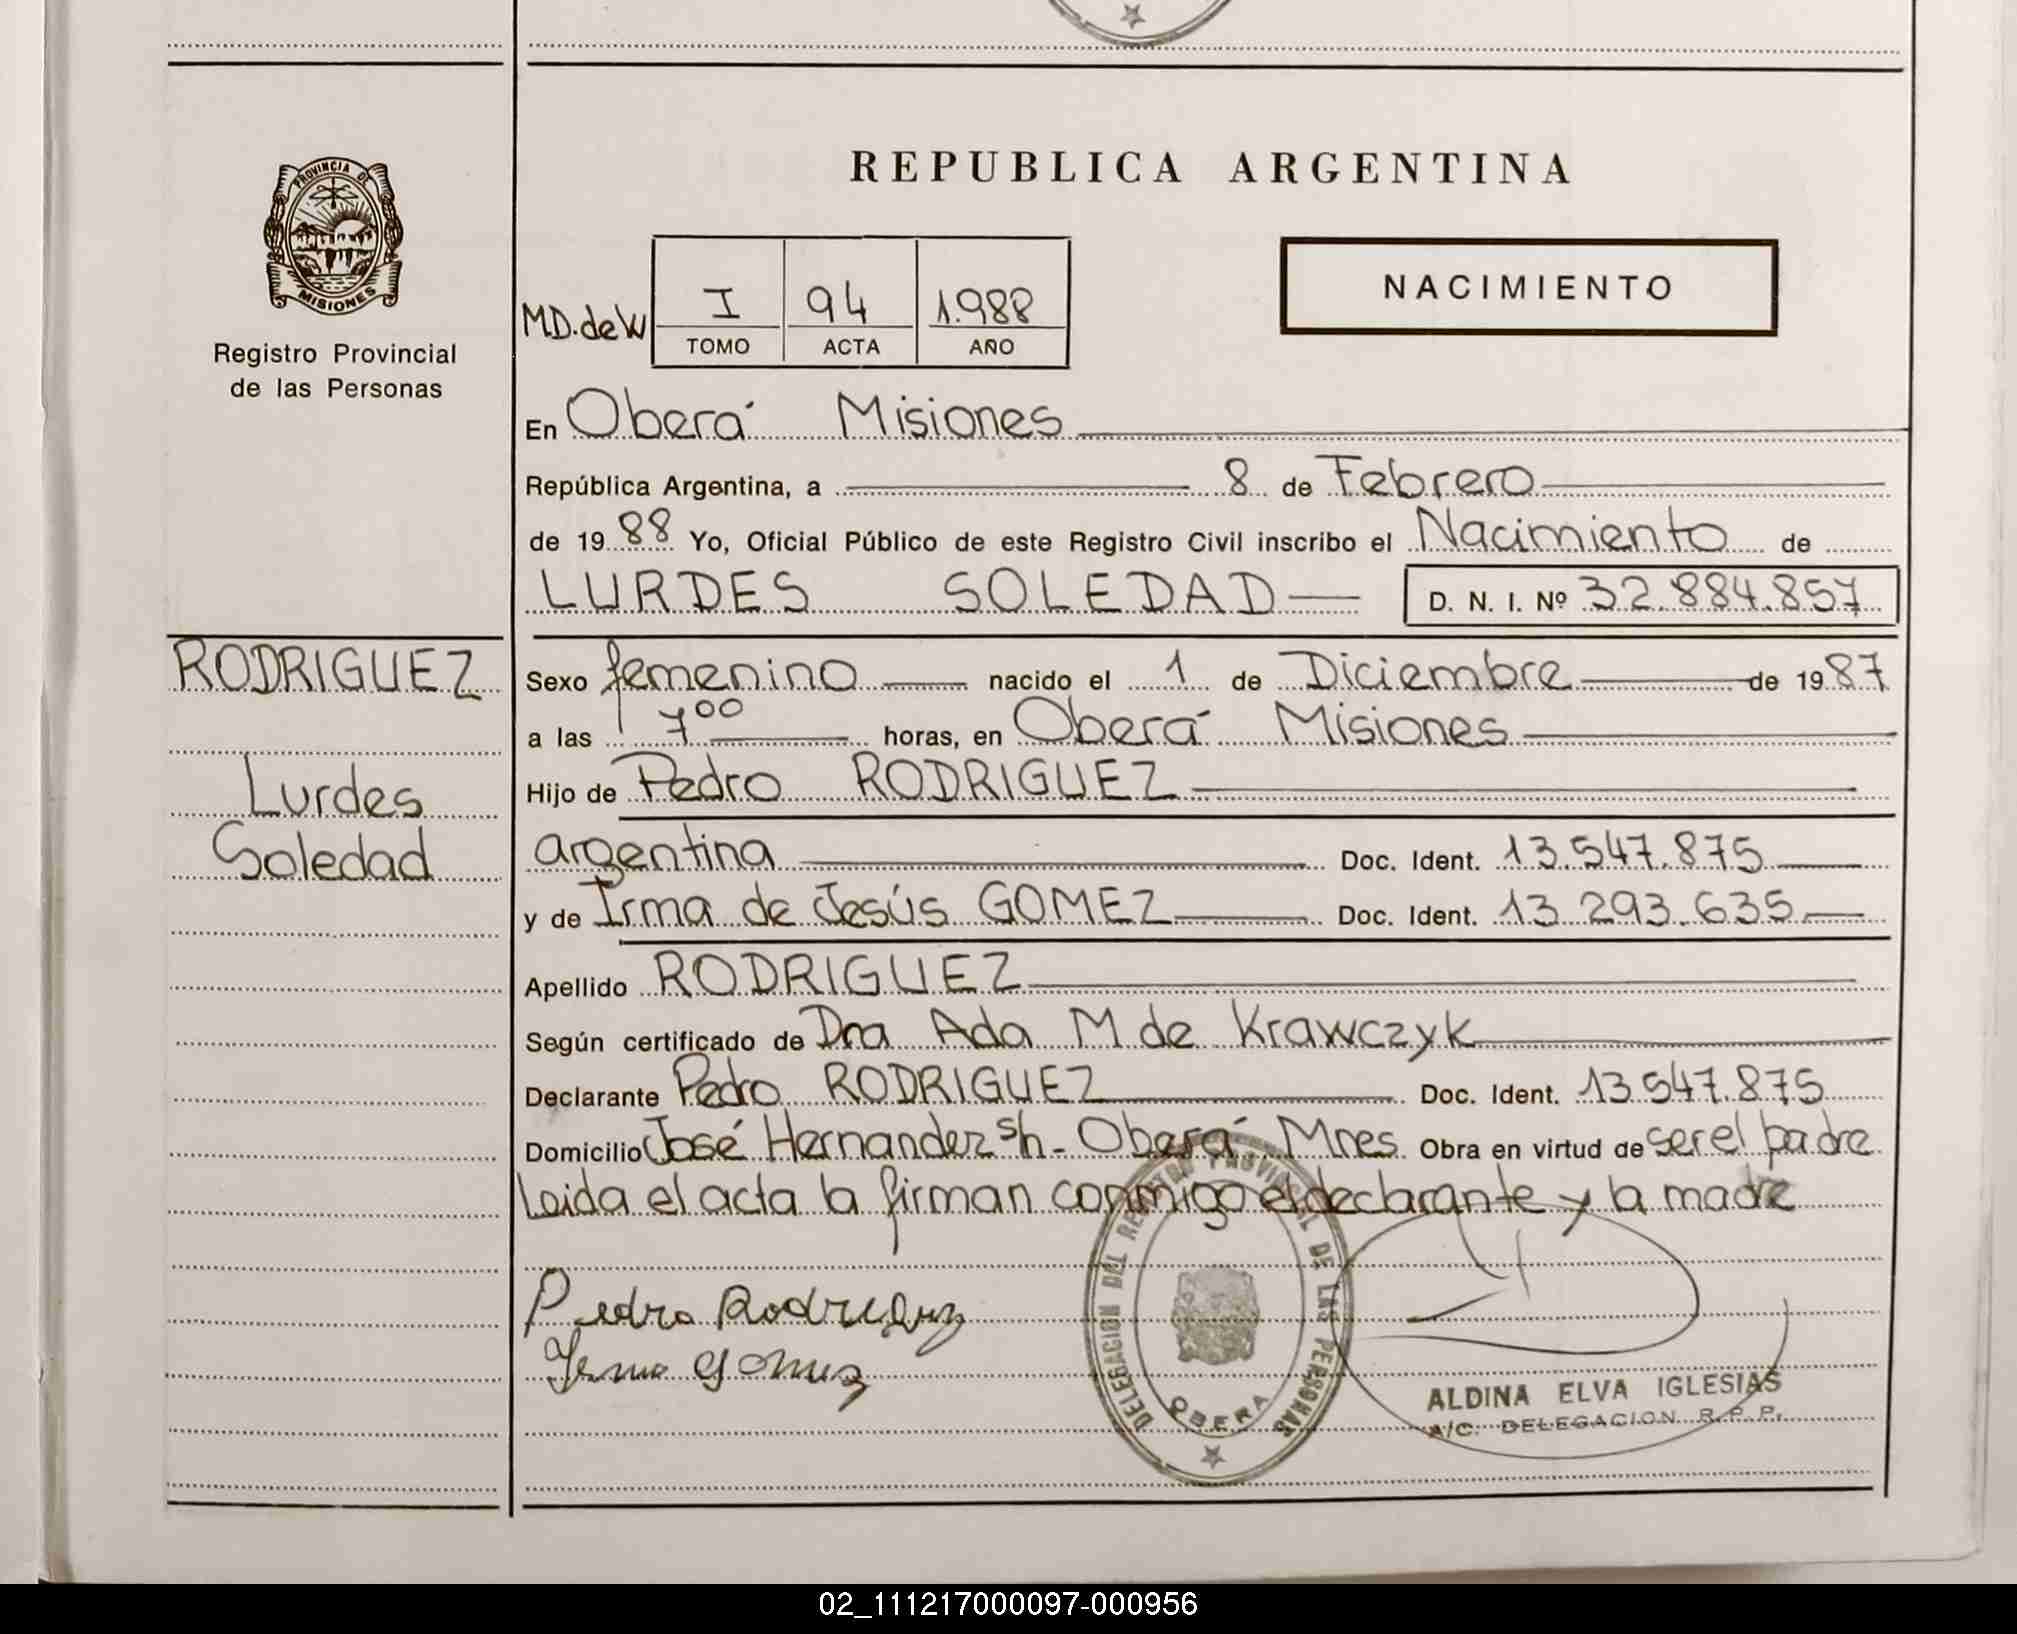 REPUBLICA ARGENTINA
PROVINCIA DE
MISIONES
Registro Provincial
de las Personas
NACIMIENTO
M.D. de W
I 94 1.988
TOMO ACTA AÑO
En Oberá Misiones
República Argentina, a 8 de Febrero
de 19 88 Yo, Oficial Público de este Registro Civil inscribo el Nacimiento de
LURDES SOLEDAD D. N. I. Nº 32.884.857
RODRIGUEZ
Lurdes
Soledad
Sexo femenino nacido el 1 de Diciembre de 19 87
a las 7 00 horas, en Oberá Misiones
Hijo de Pedro RODRIGUEZ
argentina Doc. Ident. 13.547.875
y de Irma de Jesús GOMEZ Doc. Ident. 13.293.635
Apellido RODRIGUEZ
Según certificado de Dra Ada M de Krawczyk
Declarante Pedro RODRIGUEZ Doc. Ident. 13.547.875
Domicilio José Hernandez s/h - Oberá Mnes Obra en virtud de ser el padre
Leida el acta la firman conmigo el declarante y la madre
Pedro Rodriguez
Irma Gomez
DELEGACION DEL REGISTRO PROVINCIAL DE LAS PERSONAS
OBERA
ALDINA ELVA IGLESIAS
A/C. DELEGACION R.P.P.
02_111217000097-000956